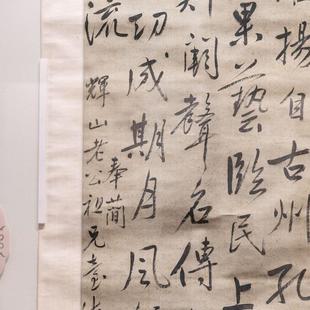 揚自古州孔
果藝臨民上
聞聲名傳
功成期月風
流
奉蕳
輝山老公祖兄臺